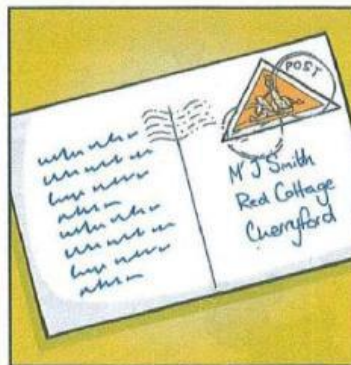 POST
Mr J Smith
Red Cottage
Cherryford